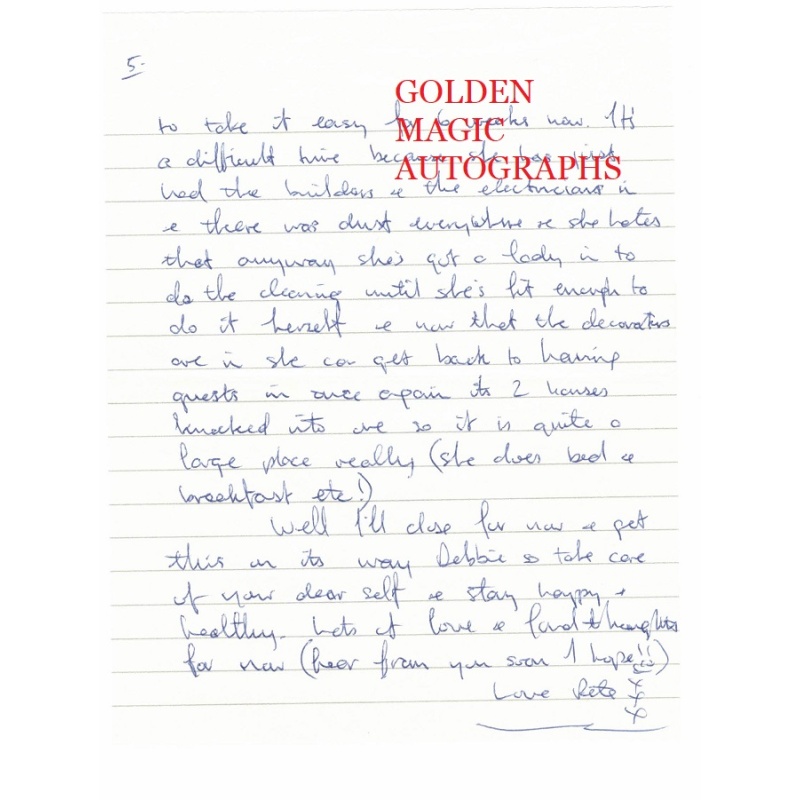 5.
GOLDEN
MAGIC
AUTOGRAPHS
to take it easy for 6 weeks now. It's
a difficult time because she has just
had the builders & the electricians in
& there was dust everywhere & she hates
that anyway she's got a lady in to
do the cleaning until she's fit enough to
do it herself & now that the decorators
are in she can get back to having
guests in once again its 2 houses
knocked into one so it is quite a
large place really (she does bed &
breakfast etc!)
Well I'll close for now & get
this on its way Debbie so take care
of your dear self & stay happy &
healthy. Lots of love & fond thoughts
for now (hear from you soon I hope!!)
Love Pete
x
x
x